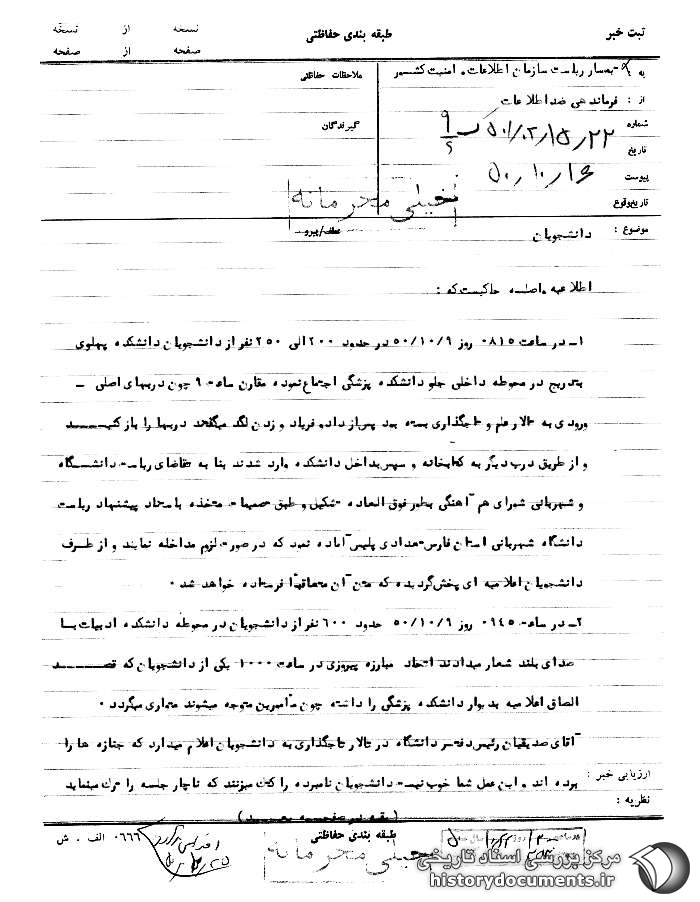 ثبت خبر
طبقه بندی حفاظتی
نسخه از نسخه
صفحه از صفحه
به : تیمسار ریاست سازمان اطلاعات و امنیت کشور
ملاحظات حفاظتی
از : فرماندهی ضد اطلاعات
شماره
گیرندگان
تاریخ
پیوست ۵۰/۱۰/۱۶
تاریخ وقوع
خیلی محرمانه
موضوع : دانشجویان
عطف/پیرو
اطلاعیه واصله حاکیست که :
۱- در ساعت ۰۸۱۵ روز ۵۰/۱۰/۹ در حدود ۲۰۰ الی ۲۵۰ نفر از دانشجویان دانشکده پهلوی
بتدریج در محوطه داخلی جلو دانشکده پزشگی اجتماع نموده مقارن ساعت ۹ چون دربهای اصلی -
ورودی به تالار علم و تاجگذاری بسته بود پس از داد و فریاد و زدن لگد میگفتند دربها را باز کنید
و از طریق درب دیگر به کتابخانه و سپس بداخل دانشکده وارد شدند بنا به تقاضای ریاست دانشگاه
و شهربانی شورای هم آهنگی بطور فوق العاده تشکیل و طبق تصمیمات متخذه با ستاد پیشنهاد ریاست
دانشگاه شهربانی استان فارس تعدادی پلیس آماده نمود که در صورت لزوم مداخله نمایند و از طرف
دانشجویان اعلامیه ای پخش گردیده که متن آن متعاقباً فرستاده خواهد شد .
۲- در ساعت ۰۹۴۵ روز ۵۰/۱۰/۹ حدود ۶۰۰ نفر از دانشجویان در محوطه دانشکده ادبیات با
صدای بلند شعار میدادند اتحاد مبارزه پیروزی در ساعت ۱۰۰۰ یکی از دانشجویان که قصد
الصاق اعلامیه بدیوار دانشکده پزشگی را داشته چون مأمورین متوجه میشوند متواری میگردد .
آقای صدیقیان رئیس دفتر دانشگاه در تالار تاجگذاری به دانشجویان اعلام میدارد که جنازه ها را
برده اند و این عمل شما خوب نیست دانشجویان نامبرده را کتک میزنند که ناچار جلسه را ترک مینماید
ارزیابی خبر :
نظریه :
(بقیه در صفحه بعد)
طبقه بندی حفاظتی
خیلی محرمانه
۰۶۶۶ الف . ش
مرکز بررسی اسناد تاریخی
historydocuments.ir